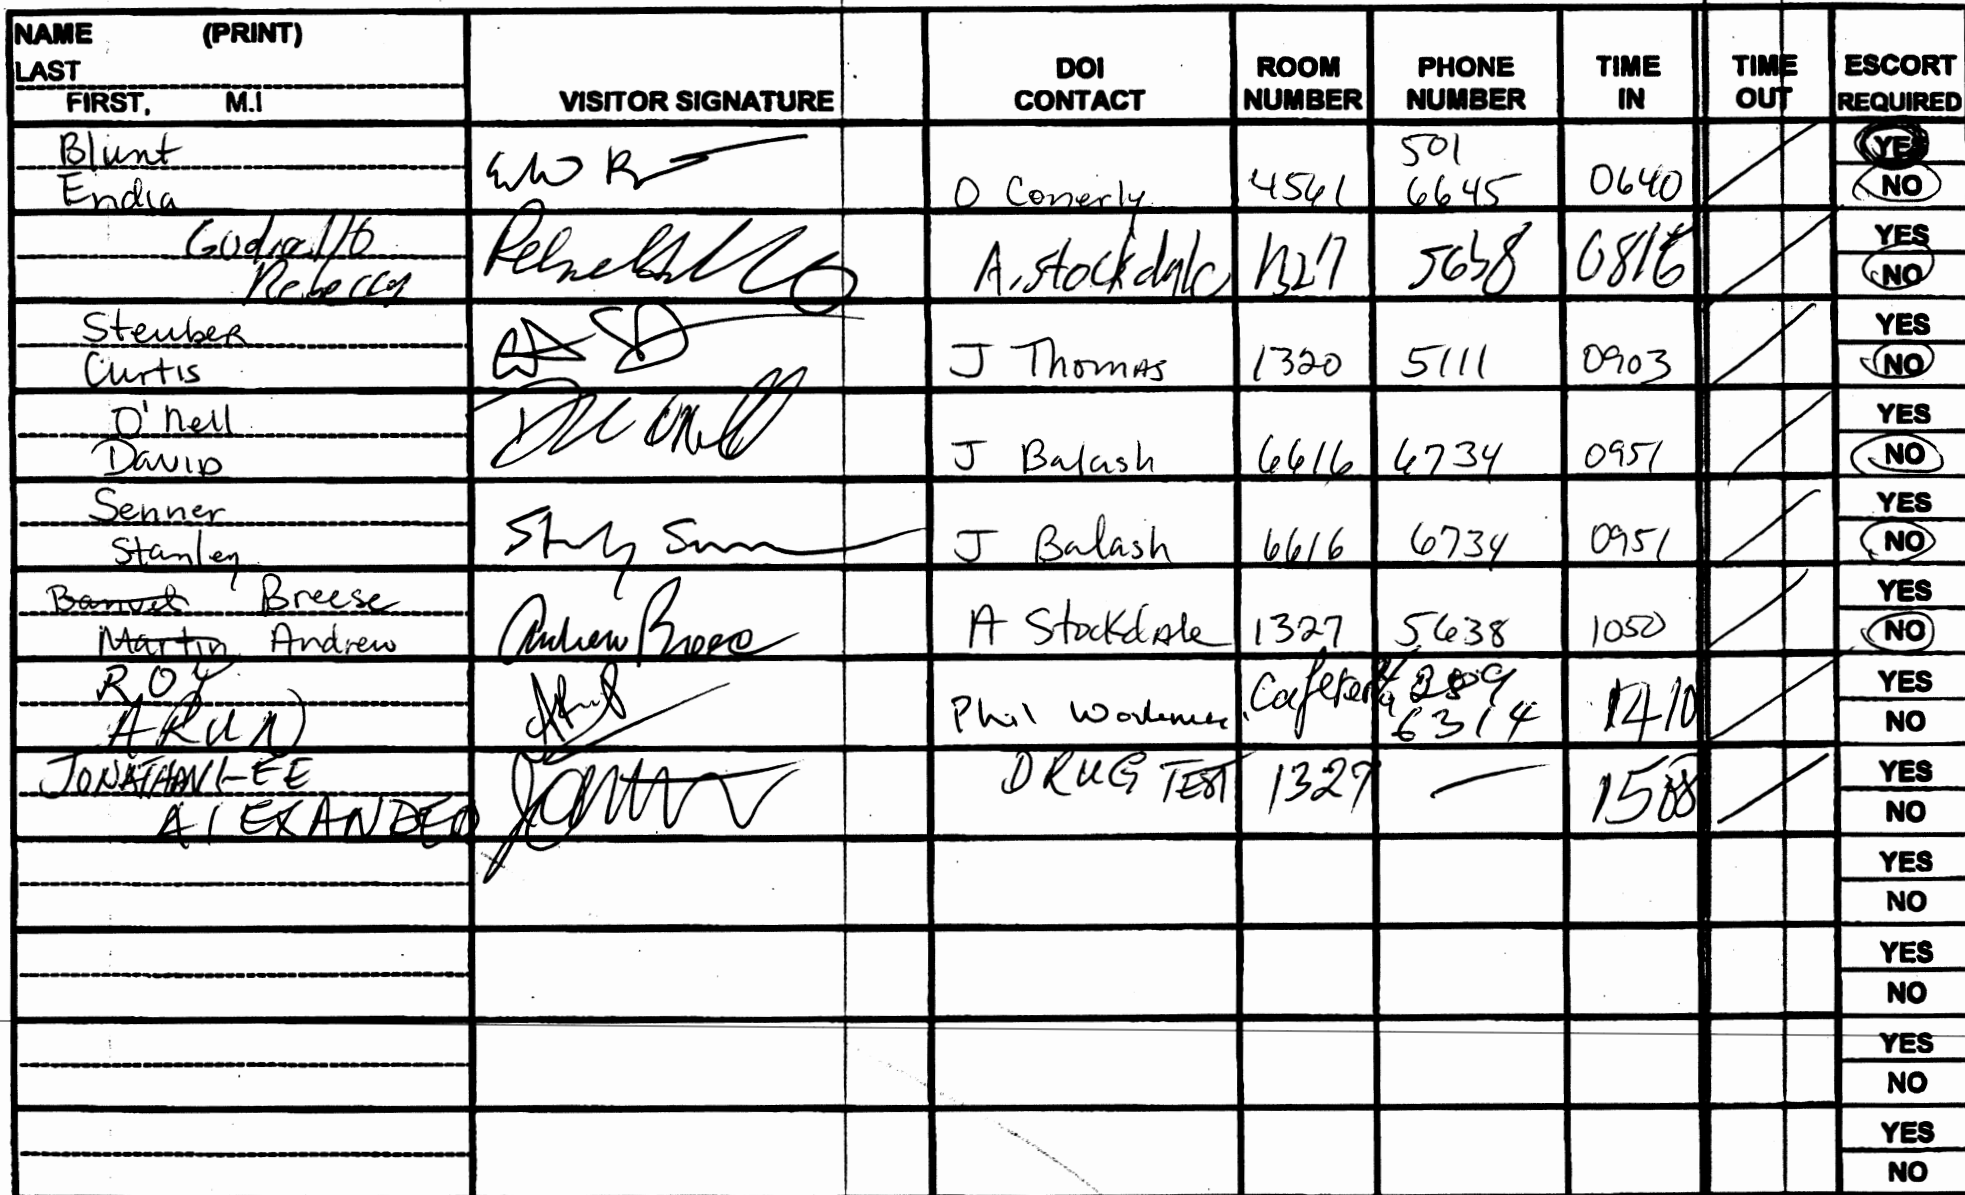 NAME (PRINT)
LAST
FIRST, M.I
VISITOR SIGNATURE
DOI CONTACT
ROOM NUMBER
PHONE NUMBER
TIME IN
TIME OUT
ESCORT REQUIRED
Blunt
Endia
O Conerly 4561 501 6645 0640
YES
NO
Rebecca
A. Stockdale 1327 5638
YES
NO
Steuber
Curtis
J Thomas 1320 5111 0903
YES
NO
O'Nell
David
J Balash 6616 6734 0951
YES
NO
Senner
Stanley
J Balash 6616 6734 0951
YES
NO
Breese
Martin Andrew
Andrew Breese
A Stockdale 1327 5638 1050
YES
NO
ROY
ARUN
Phil Cafeteria 6314 1410
YES
NO
JONATHAN LEE
ALEXANDER
DRUG TEST 1327 —
YES
NO
YES
NO
YES
NO
YES
NO
YES
NO